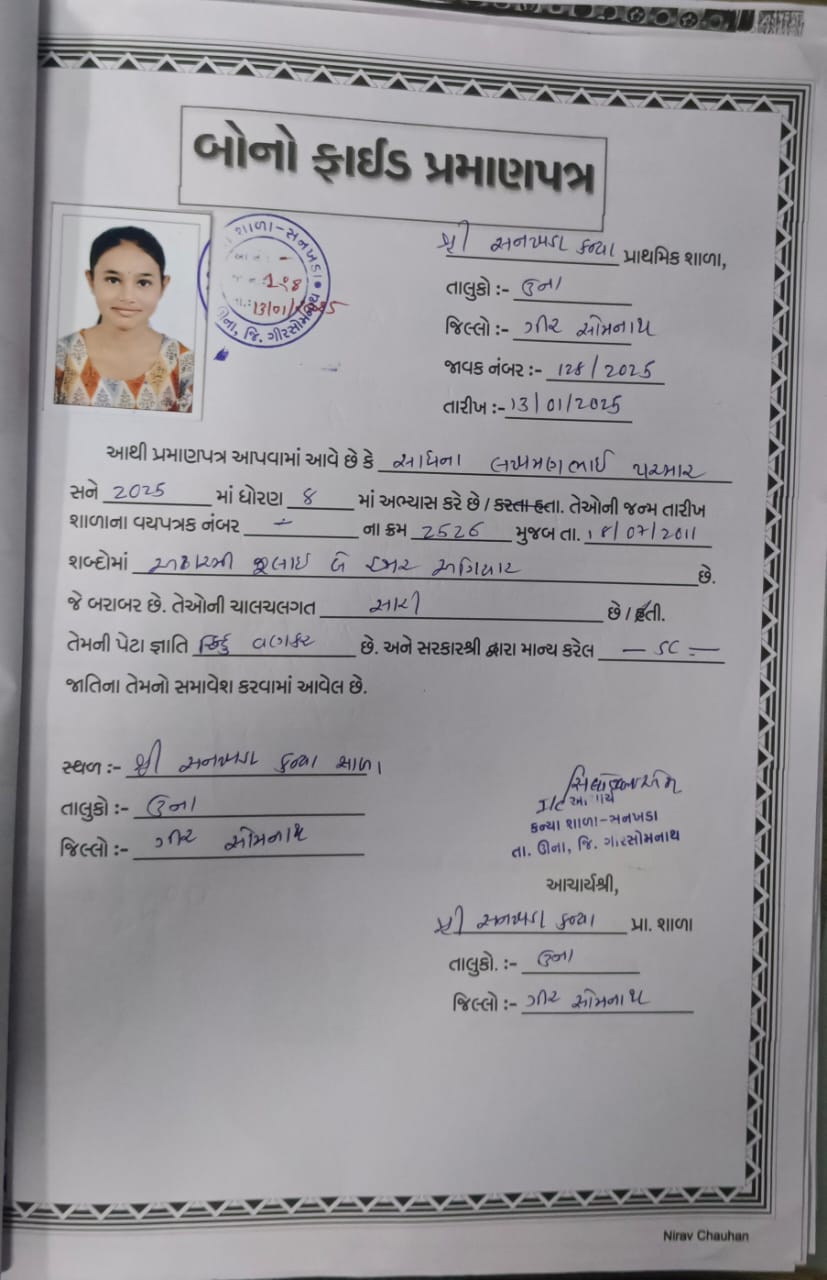 બોનો ફાઈડ પ્રમાણપત્ર
શાળા-સનખડા
જા.નં.: ૧૨૪
તા.: 13/01/2025
ઊના, જિ. ગીરસોમનાથ
શ્રી સનખડા કન્યા પ્રાથમિક શાળા,
તાલુકો :- ઉના
જિલ્લો :- ગીર સોમનાથ
જાવક નંબર :- 128/2025
તારીખ :- 13/01/2025
આથી પ્રમાણપત્ર આપવામાં આવે છે કે સાધના લખમણભાઈ પરમાર
સને 2025 માં ધોરણ 8 માં અભ્યાસ કરે છે / કરતા હતા. તેઓની જન્મ તારીખ
શાળાના વયપત્રક નંબર ના ક્રમ 2526 મુજબ તા. 18/07/2011
શબ્દોમાં અઢારમી જૂલાઇ બે હજાર અગિયાર છે.
જે બરાબર છે. તેઓની ચાલચલગત સારી છે / હતી.
તેમની પેટા જ્ઞાતિ હિન્દુ વણકર છે. અને સરકારશ્રી દ્વારા માન્ય કરેલ – SC –
જાતિના તેમનો સમાવેશ કરવામાં આવેલ છે.
સ્થળ :- શ્રી સનખડા કન્યા શાળા
તાલુકો :- ઉના
જિલ્લો :- ગીર સોમનાથ
I/C આચાર્ય
કન્યા શાળા-સનખડા
તા. ઊના, જિ. ગીરસોમનાથ
આચાર્યશ્રી,
શ્રી સનખડા કન્યા પ્રા. શાળા
તાલુકો. :- ઉના
જિલ્લો :- ગીર સોમનાથ
Nirav Chauhan